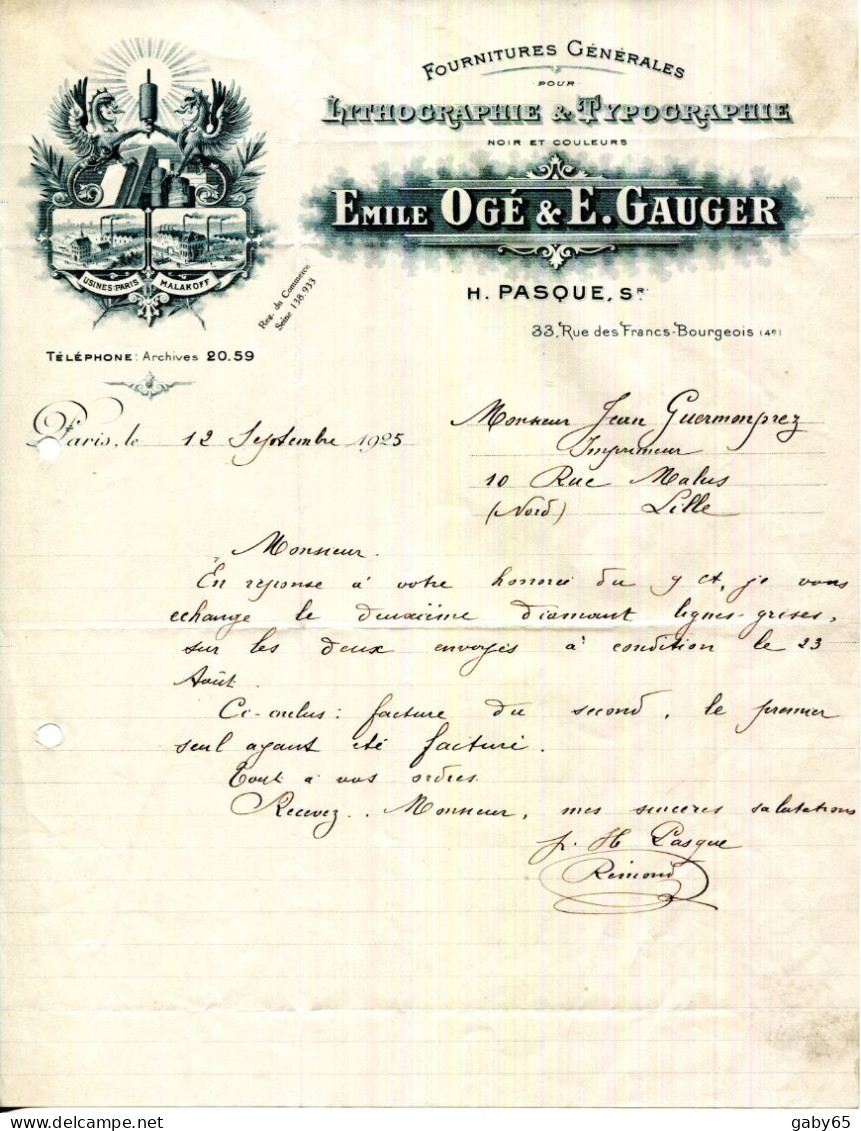 FOURNITURES GÉNÉRALES
POUR
LITHOGRAPHIE & TYPOGRAPHIE
NOIR ET COULEURS
EMILE OGÉ & E. GAUGER
H. PASQUE, SR
33, Rue des Francs-Bourgeois (4e)
USINES: PARIS MALAKOFF
Reg. du Commerce
Seine 138.933
TÉLÉPHONE: Archives 20.59
Paris, le 12 Septembre 1925
Monsieur Jean Guermonprez
Imprimeur
10 Rue Malus
(Nord) Lille
Monsieur.
En reponse à votre honorée du 9 ct, je vous
echange le deuxième diamant lignes-grises,
sur les deux envoyés à condition le 23
Août.
Ci-inclus: facture du second, le premier
seul ayant été facturé.
Tout à vos ordres.
Recevez.. Monsieur, mes sincères salutations
p. H Pasque
Rémond
delcampe.net
gaby65